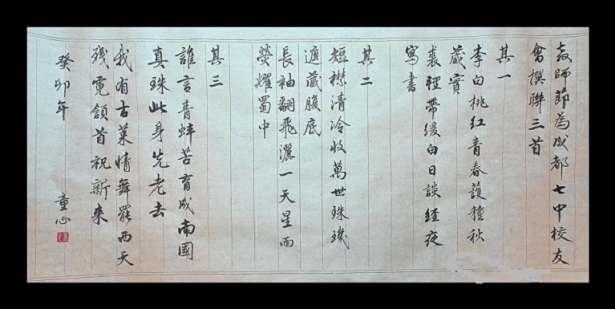 教師節為成都七中校友
會撰聯三首
其一
李白桃红青春護種秋
藏實
裘輕帶缓白日談經夜
寫書
其二
短襟清泠收萬世珠璣
通藏腹底
長袖翩飛灑一天星雨
熒耀蜀中
其三
誰言青蚌苦育成南國
真珠此身先老去
我有古菓情舞罷西天
殘霓頷首祝新來
癸卯年
童心